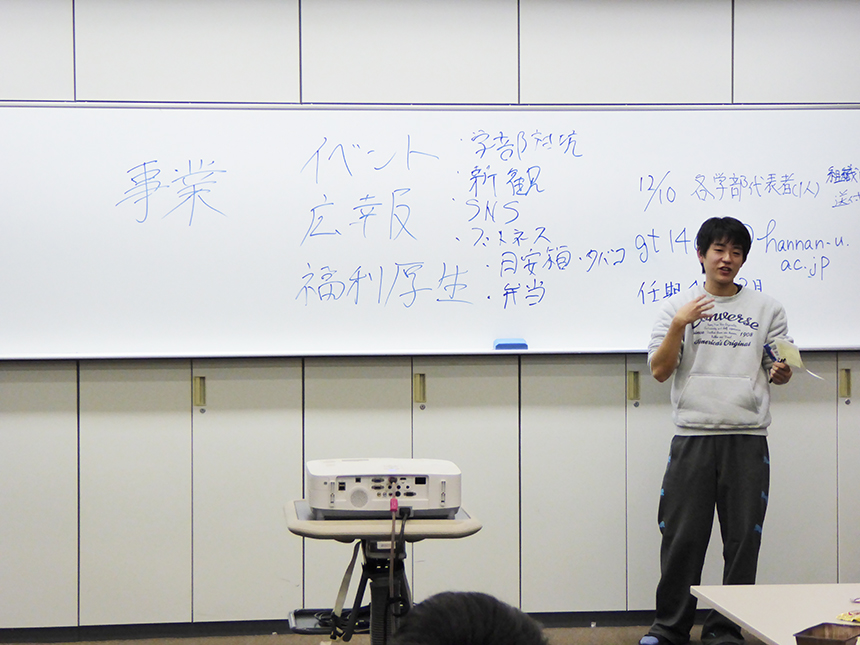 事業
イベント
広報
福利厚生
・学部対抗
・新観
・SNS
・フットネス
・目安箱・タバコ
・弁当
12/10 各学部代表者(1人)
組織
送
gt14
hannan-u.
ac.jp
任期
Converse
1908
America's Original